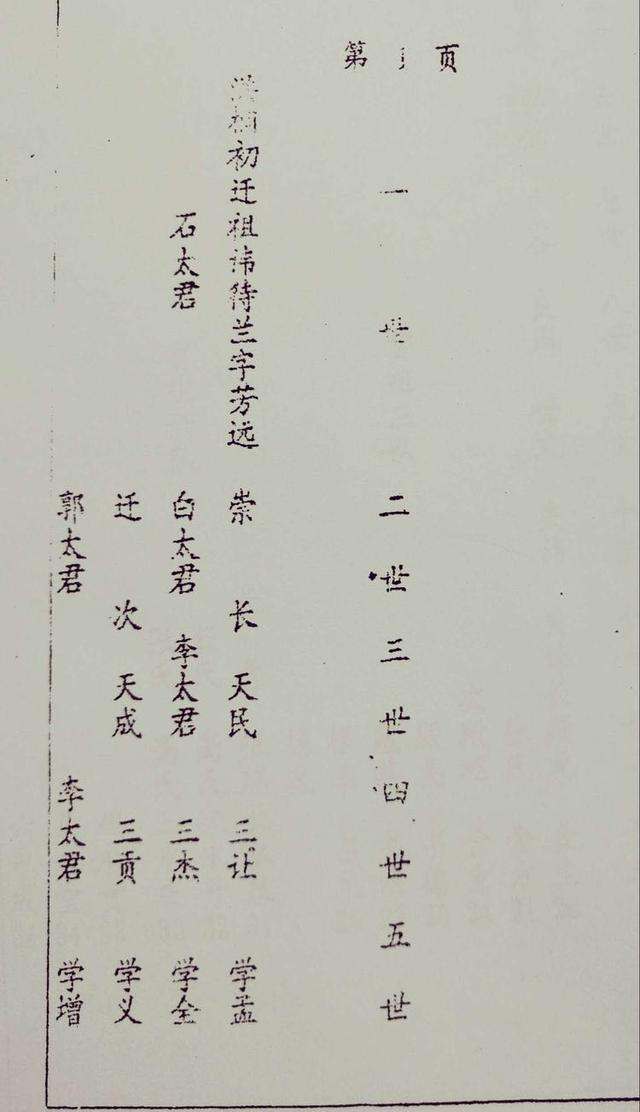 第 页
一世 二世 三世 四世 五世
初迁祖讳待兰字芳远 崇 长 天民 三让 学孟
石太君 白太君 李太君 三杰 学全
迁 次 天成 三贡 学义
郭太君 李太君 学增